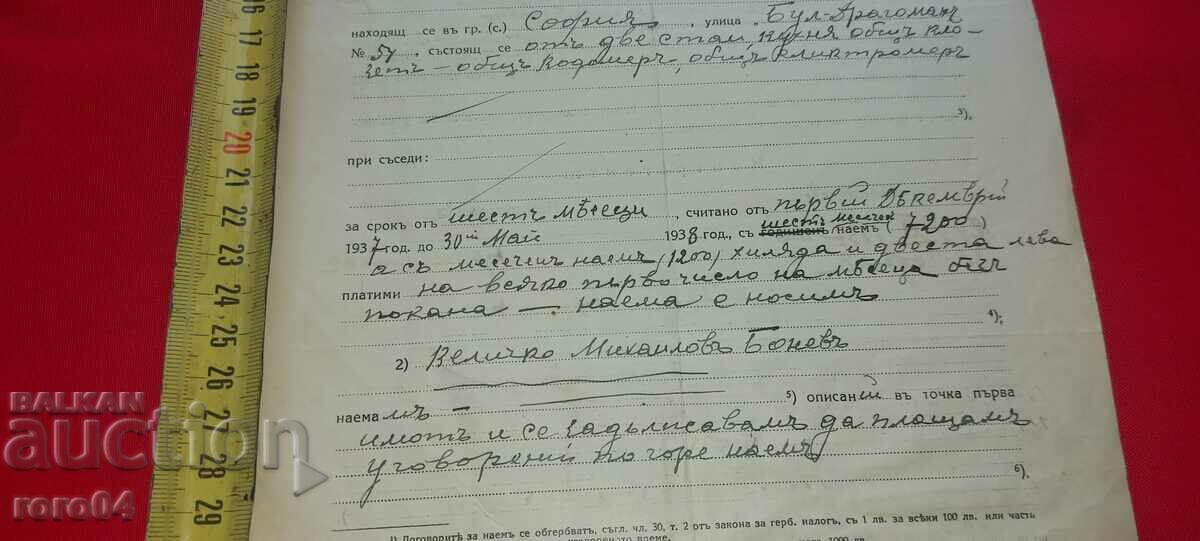 находящ се въ гр. (с.) София, улица Бул. Драгоманъ
№ 54, състоящ се отъ две стаи, кухня общъ кло-
зетъ – общъ водомеръ, общъ електромеръ
3),
при съседи:
за срокъ отъ шестъ месеци, считано отъ първий Декемврий
1937 год. до 30ий Май 1938 год., съ годишенъ шестъ месеченъ наемъ (7200)
а съ месеченъ наемъ (1200) хиляда и двеста лева
платими на всяко първо число на месеца безъ
покана — наема е носимъ
4);
2) Величко Михаиловъ Боневъ
наемамъ – 5) описаний въ точка първа
имотъ и се задължавамъ да плащамъ
уговорений по горе наемъ
6),
1) Договоритѣ за наемъ се обгербватъ, съгл. чл. 30, т. 2 отъ закона за герб. налогъ, съ 1 лв. за всѣки 100 лв. или часть
време.
1000 лв.
16
17
18
19
20
21
22
23
24
25
26
27
28
29
BALKAN
auction
roro04